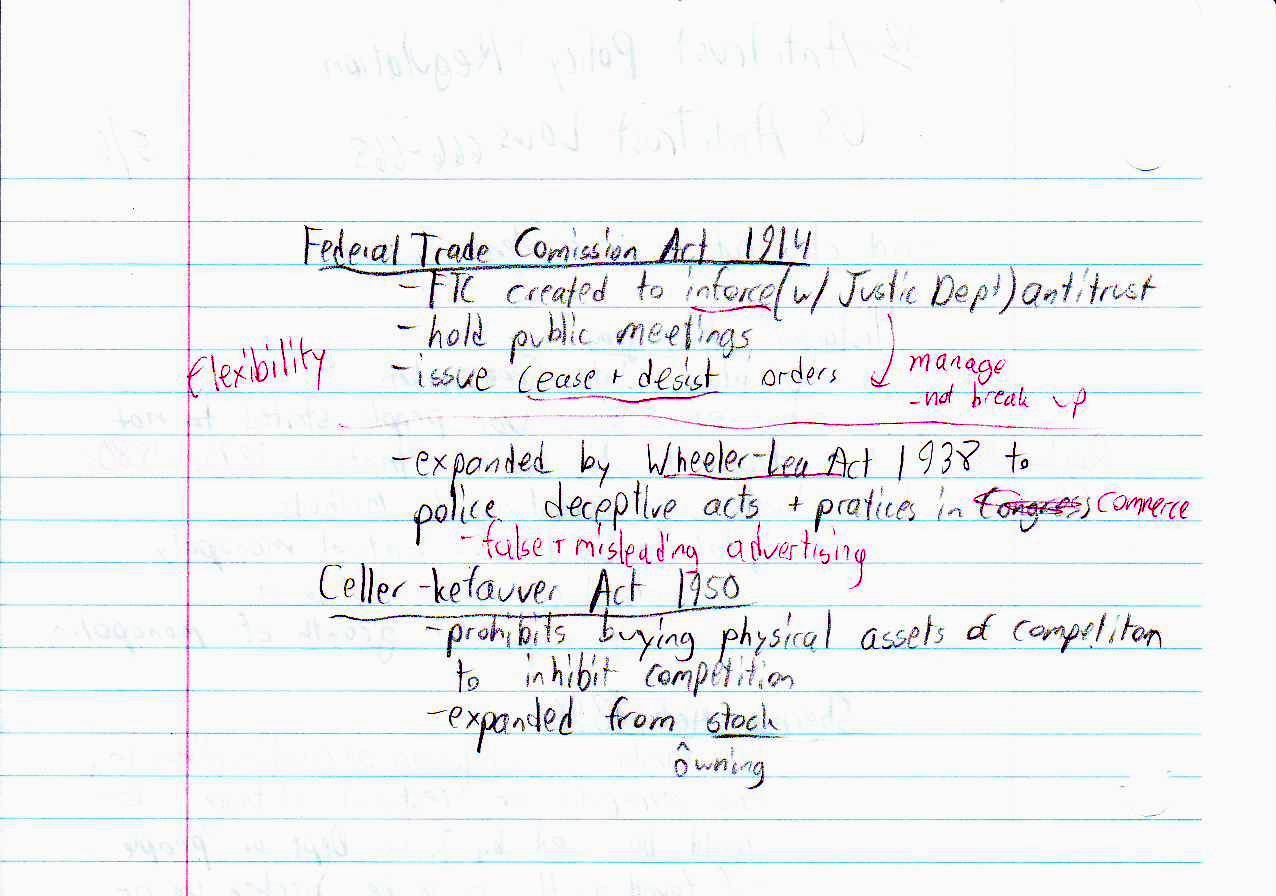 Federal Trade Comission Act 1914
- FTC created to inforce (w/ Justic Dept) antitrust
- hold public meetings
flexibility
- issue cease + desist orders
manage
- not break up
- expanded by Wheeler-Lea Act 1938 to
police deceptive acts + pratices in Congress commerce
- false + misleading advertising
Celler-kefauver Act 1950
- prohibits buying physical assets of competiton
to inhibit competition
- expanded from stock
^ owning